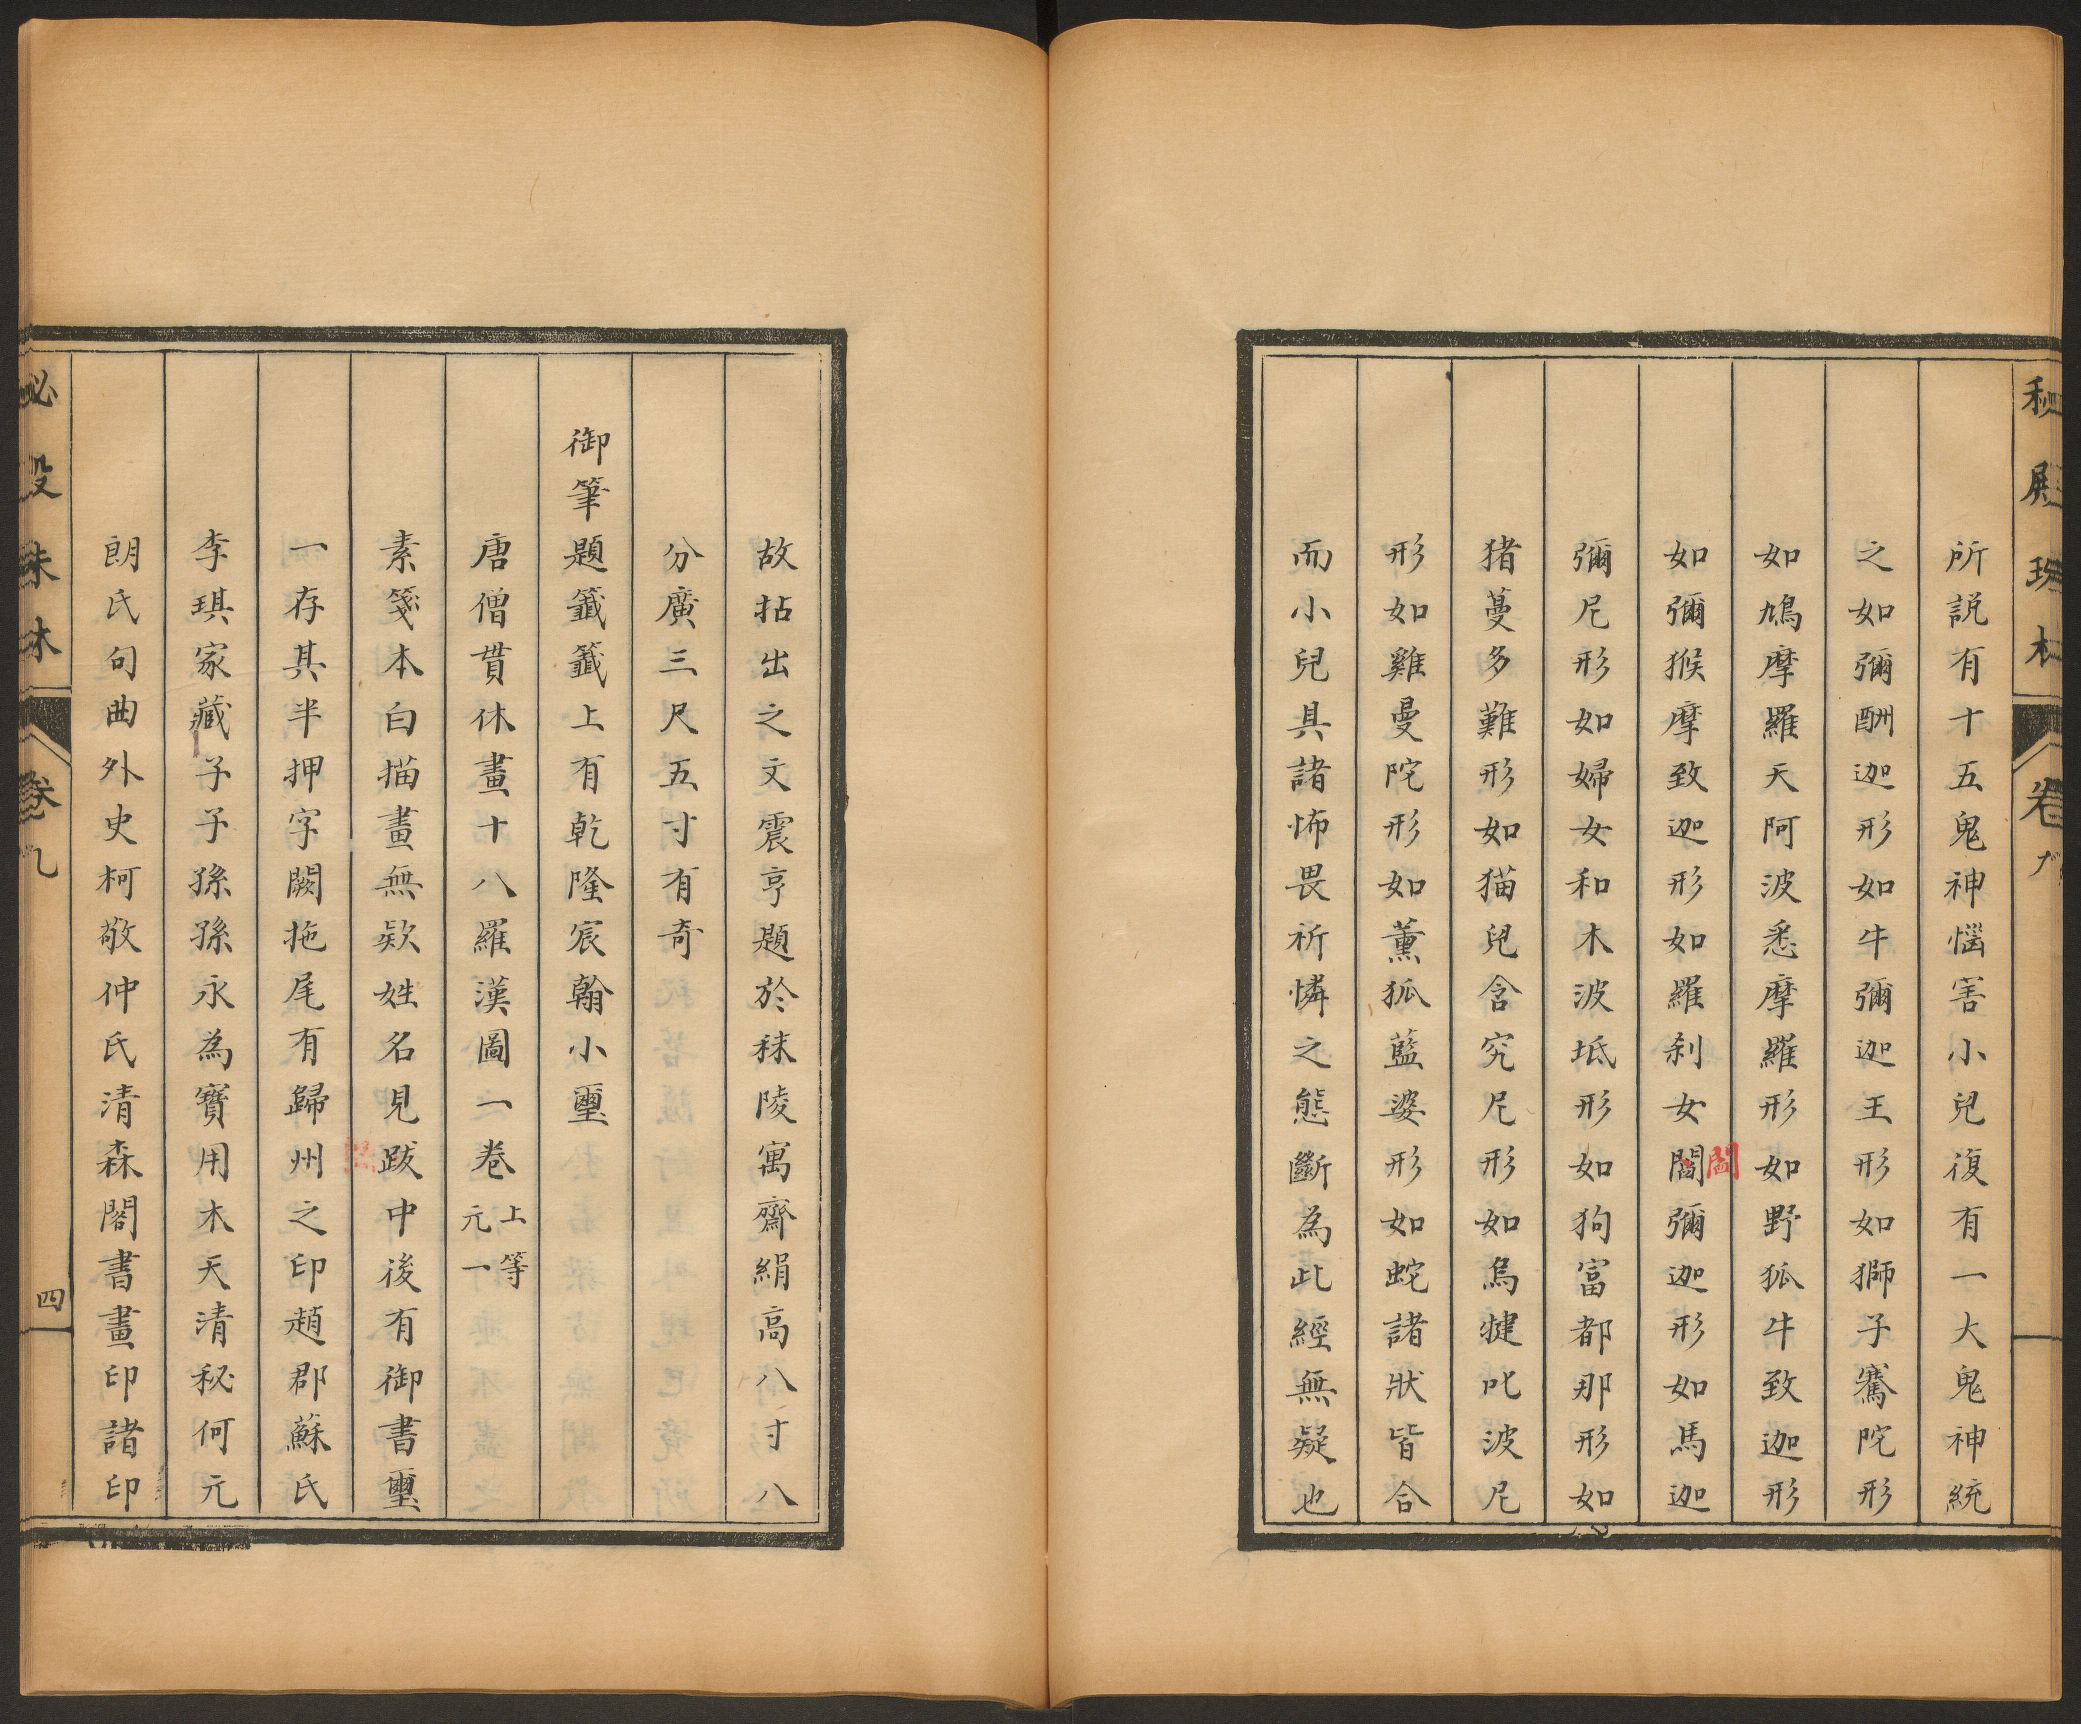 秘殿珠林
卷九
所説有十五鬼神惱害小兒復有一大鬼神統
之如彌酬迦形如牛彌迦王形如獅子騫陀形
如鳩摩羅天阿波悉摩羅形如野狐牛致迦形
如彌猴摩致迦形如羅刹女閻彌迦形如馬迦
閻
彌尼形如婦女和木波坻形如狗富都那形如
猪蔓多難形如猫兒含究尼形如烏揵叱波尼
形如雞曼陀形如薰狐藍婆形如蛇諸狀皆合
而小兒具諸怖畏祈憐之態斷為此經無疑也
故拈出之文震亨題於秣陵寓齋絹高八寸八
分廣三尺五寸有奇
御筆題籤籤上有乾隆宸翰小璽
唐僧貫休畫十八羅漢圖一卷上等元一
素箋本白描畫無欵姓名見跋中後有御書璽
一存其半押字闕拖尾有歸州之印趙郡蘇氏
李琪家藏子子孫孫永為寶用木天清秘何元
朗氏句曲外史柯敬仲氏清森閣書畫印諸印
秘殿珠林
卷九
四